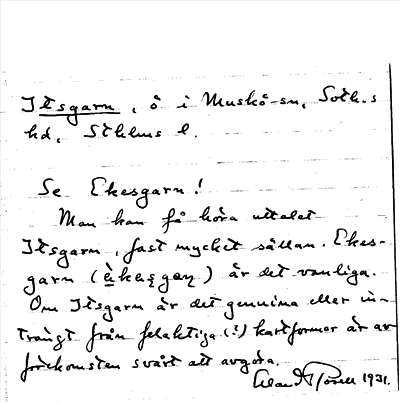 Itsgarn, ö i Muskö-sn, Soth.s
hd, Sthlms l.
Se Ekesgarn!
Man kan få höra uttalet
Itsgarn, fast mycket sällan. Ekes-
garn (èkesgan) är det vanliga.
Om Itsgarn är det genuina eller in-
trängt från felaktiga (?) kartformer är av
förekomsten svårt att avgöra.
1931.